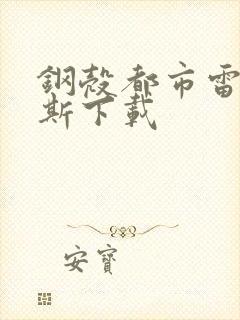 鋼殼都市雷
斯下載
安寶